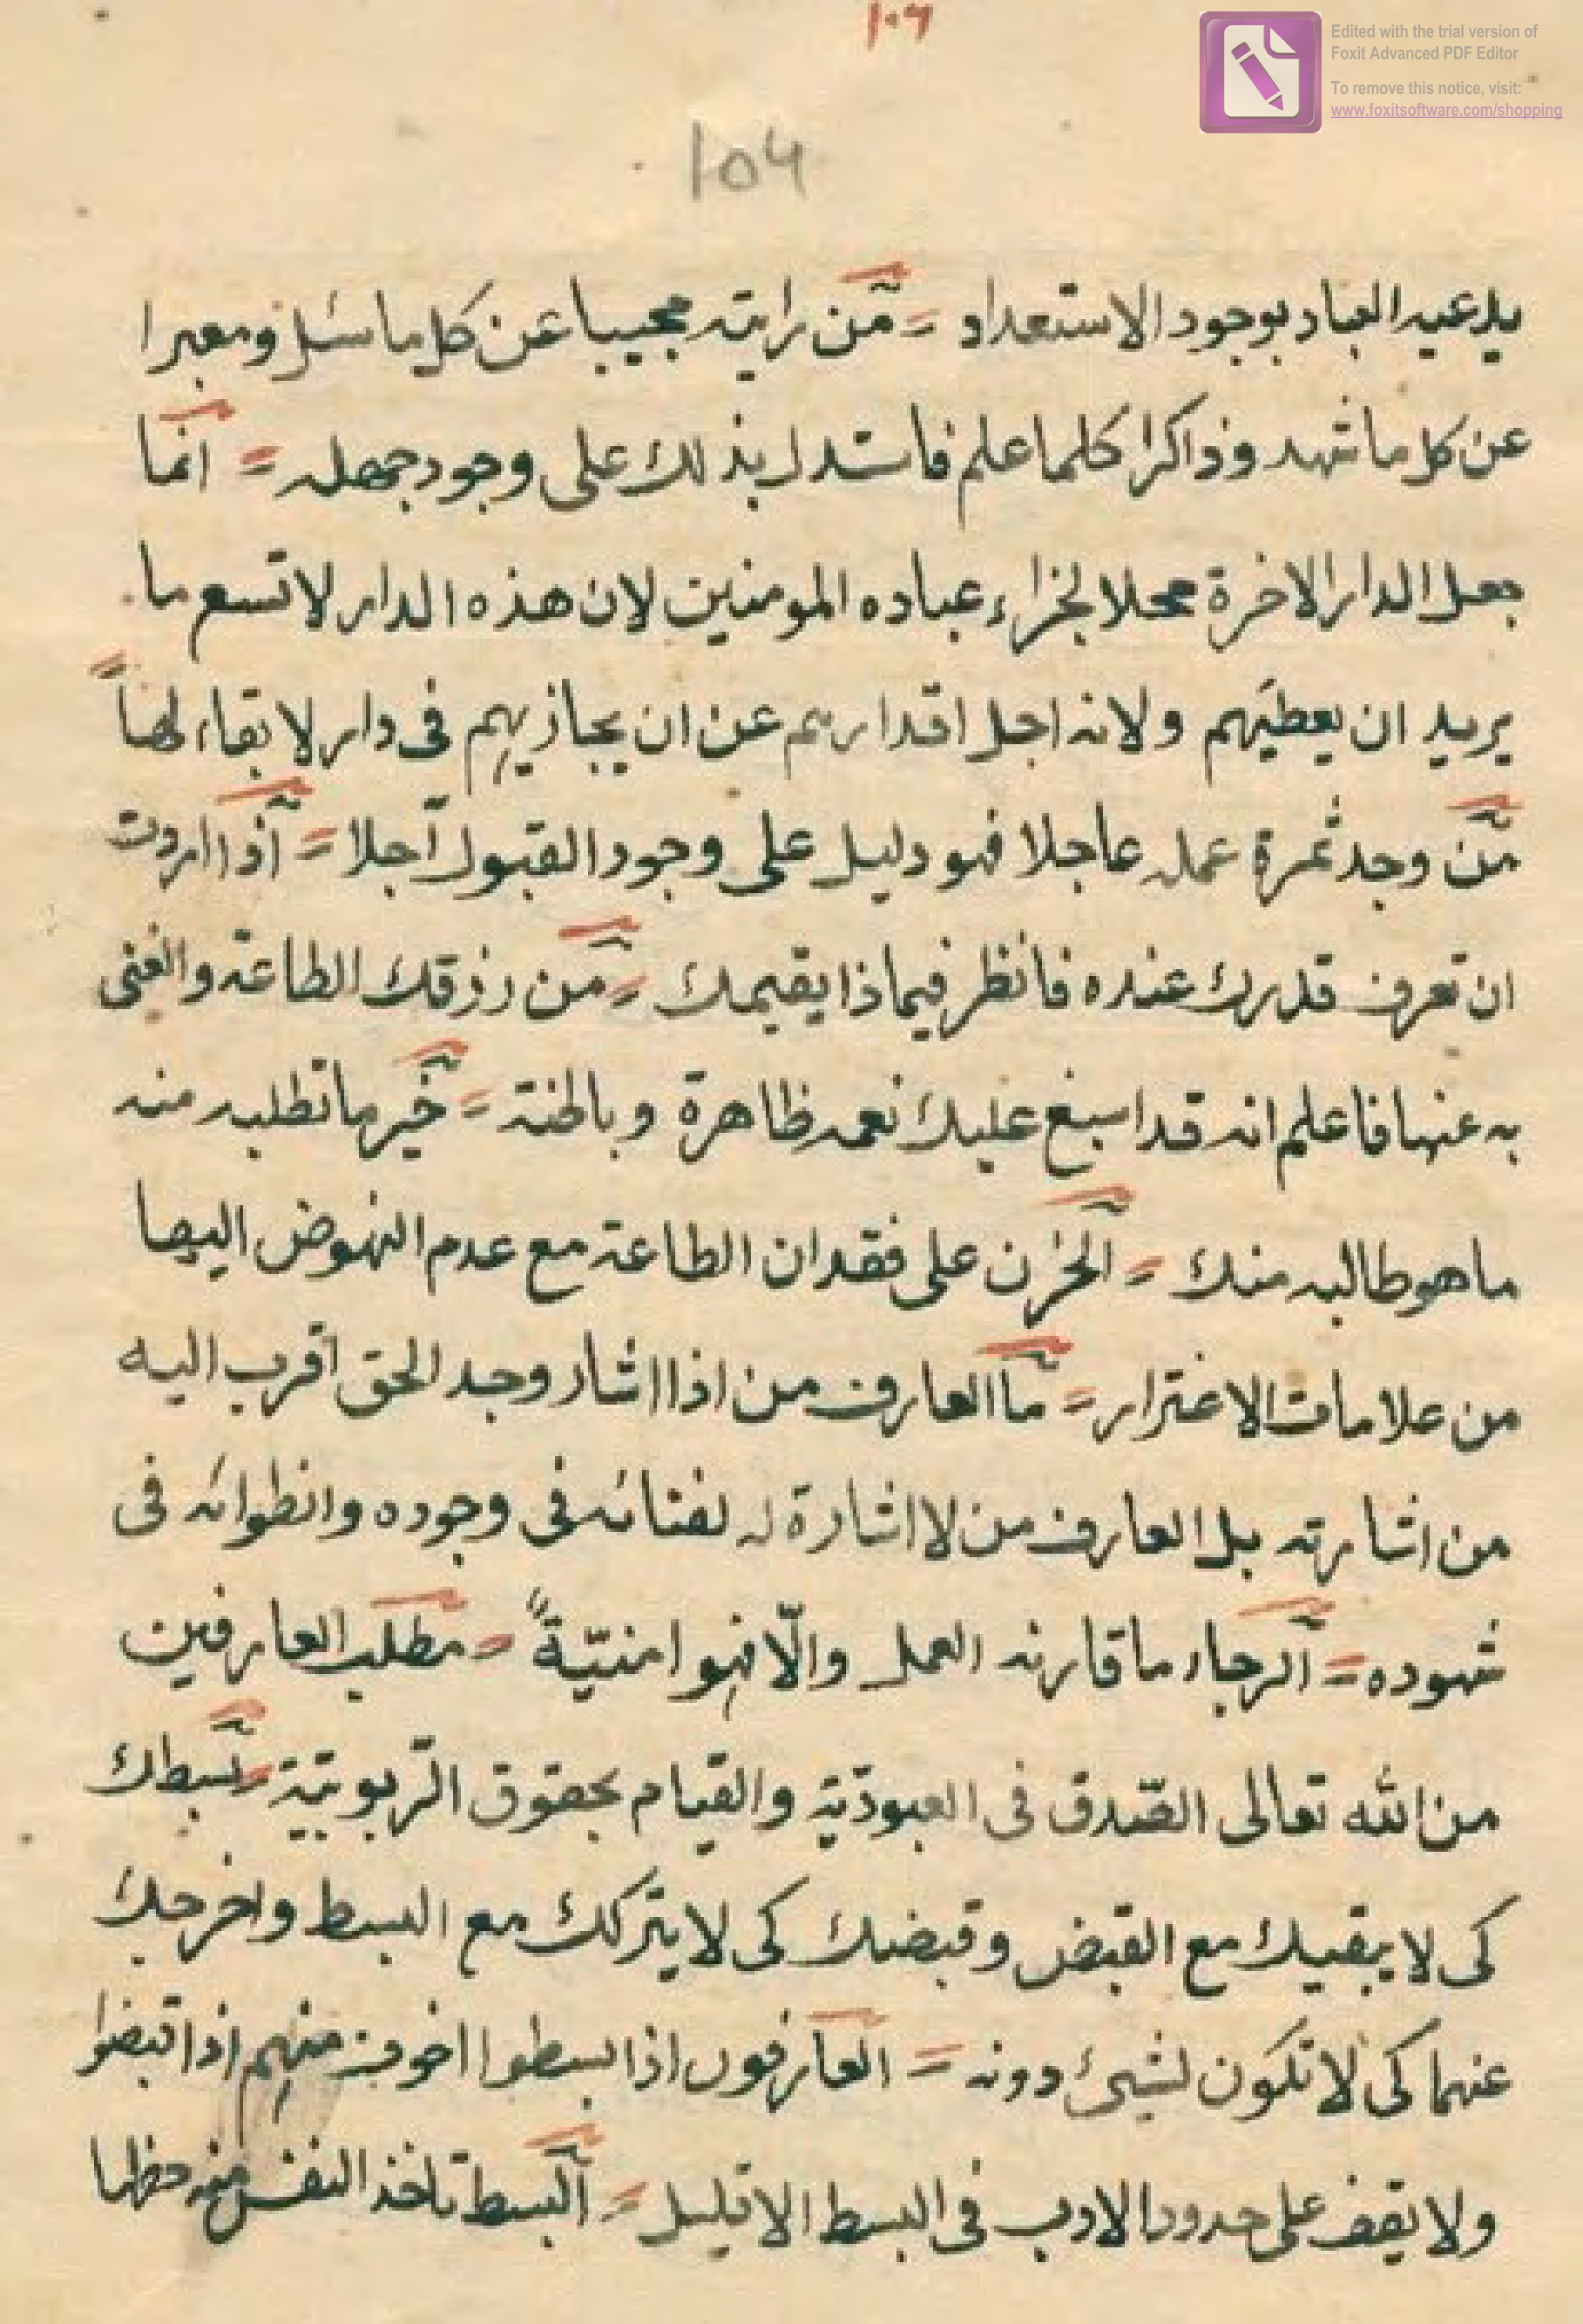 ١٠٦
Edited with the trial version of
Foxit Advanced PDF Editor
To remove this notice, visit:
www.foxitsoftware.com/shopping
١٥٦
يدعيه العباد بوجود الاستعداد = من رايته مجيبا عن كل ما سئل ومعبرا
عن كل ما شهد وذاكرا كلما علم فاستدل بذلك على وجود جهله = انما
جعل الدار الاخرة محلا لجزاء عباده المومنين لان هذه الدار لا تسع ما
يريد ان يعطيهم ولانه اجل اقدارهم عن ان يجازيهم فى دار لا بقاء لها =
من وجد ثمرة عمله عاجلا فهو دليل على وجود القبول آجلا = اذا اردت
ان تعرف قدرك عنده فانظر فيما ذا يقيمك = من رزقك الطاعة والغنى
به عنها فاعلم انه قد اسبغ عليك نعمه ظاهرة وباطنة = خير ما تطلبه منه
ما هو طالبه منك = الحزن على فقدان الطاعة مع عدم النهوض اليها
من علامات الاغترار = ما العارف من اذا اشار وجد الحق اقرب اليه
من اشارته بل العارف من لا اشارة له لفنائه فى وجوده وانطوائه فى
شهوده = الرجاء ما قارنه العمل والّا فهو امنيّة = مطلب العارفين
من الله تعالى الصّدق فى العبوديّة والقيام بحقوق الرّبوبيّة = بسطك
كى لا يبقيك مع القبض وقبضك كى لا يتركك مع البسط واخرجك
عنهما كى لا تكون لشيئ دونه = العارفون اذا بسطوا اخوف منهم اذا قبضوا
ولا يقف على حدود الادب فى البسط الا قليل = البسط تاخذ النفس منه حظها